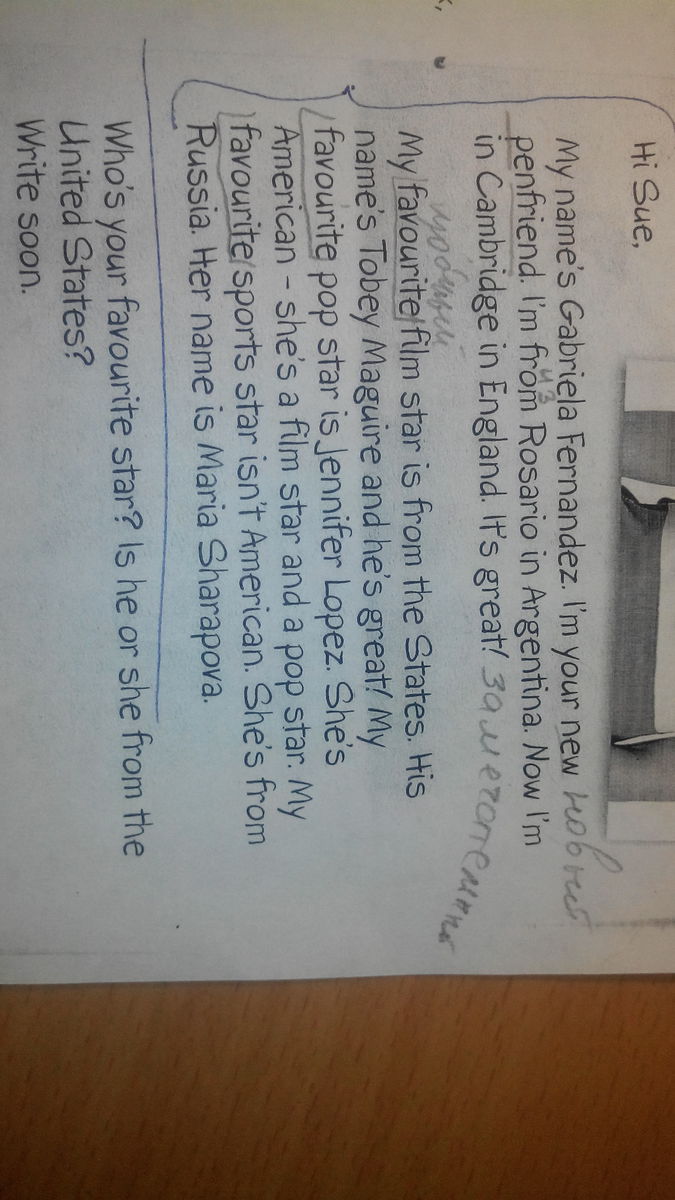 Hi Sue,
My name's Gabriela Fernandez. I'm your new новый
из
penfriend. I'm from Rosario in Argentina. Now I'm
in Cambridge in England. It's great!
любимый
My favourite film star is from the States. His
name's Tobey Maguire and he's great! My
favourite pop star is Jennifer Lopez. She's
American – she's a film star and a pop star. My
favourite sports star isn't American. She's from
Russia. Her name is Maria Sharapova.
Who's your favourite star? Is he or she from the
United States?
Write soon.